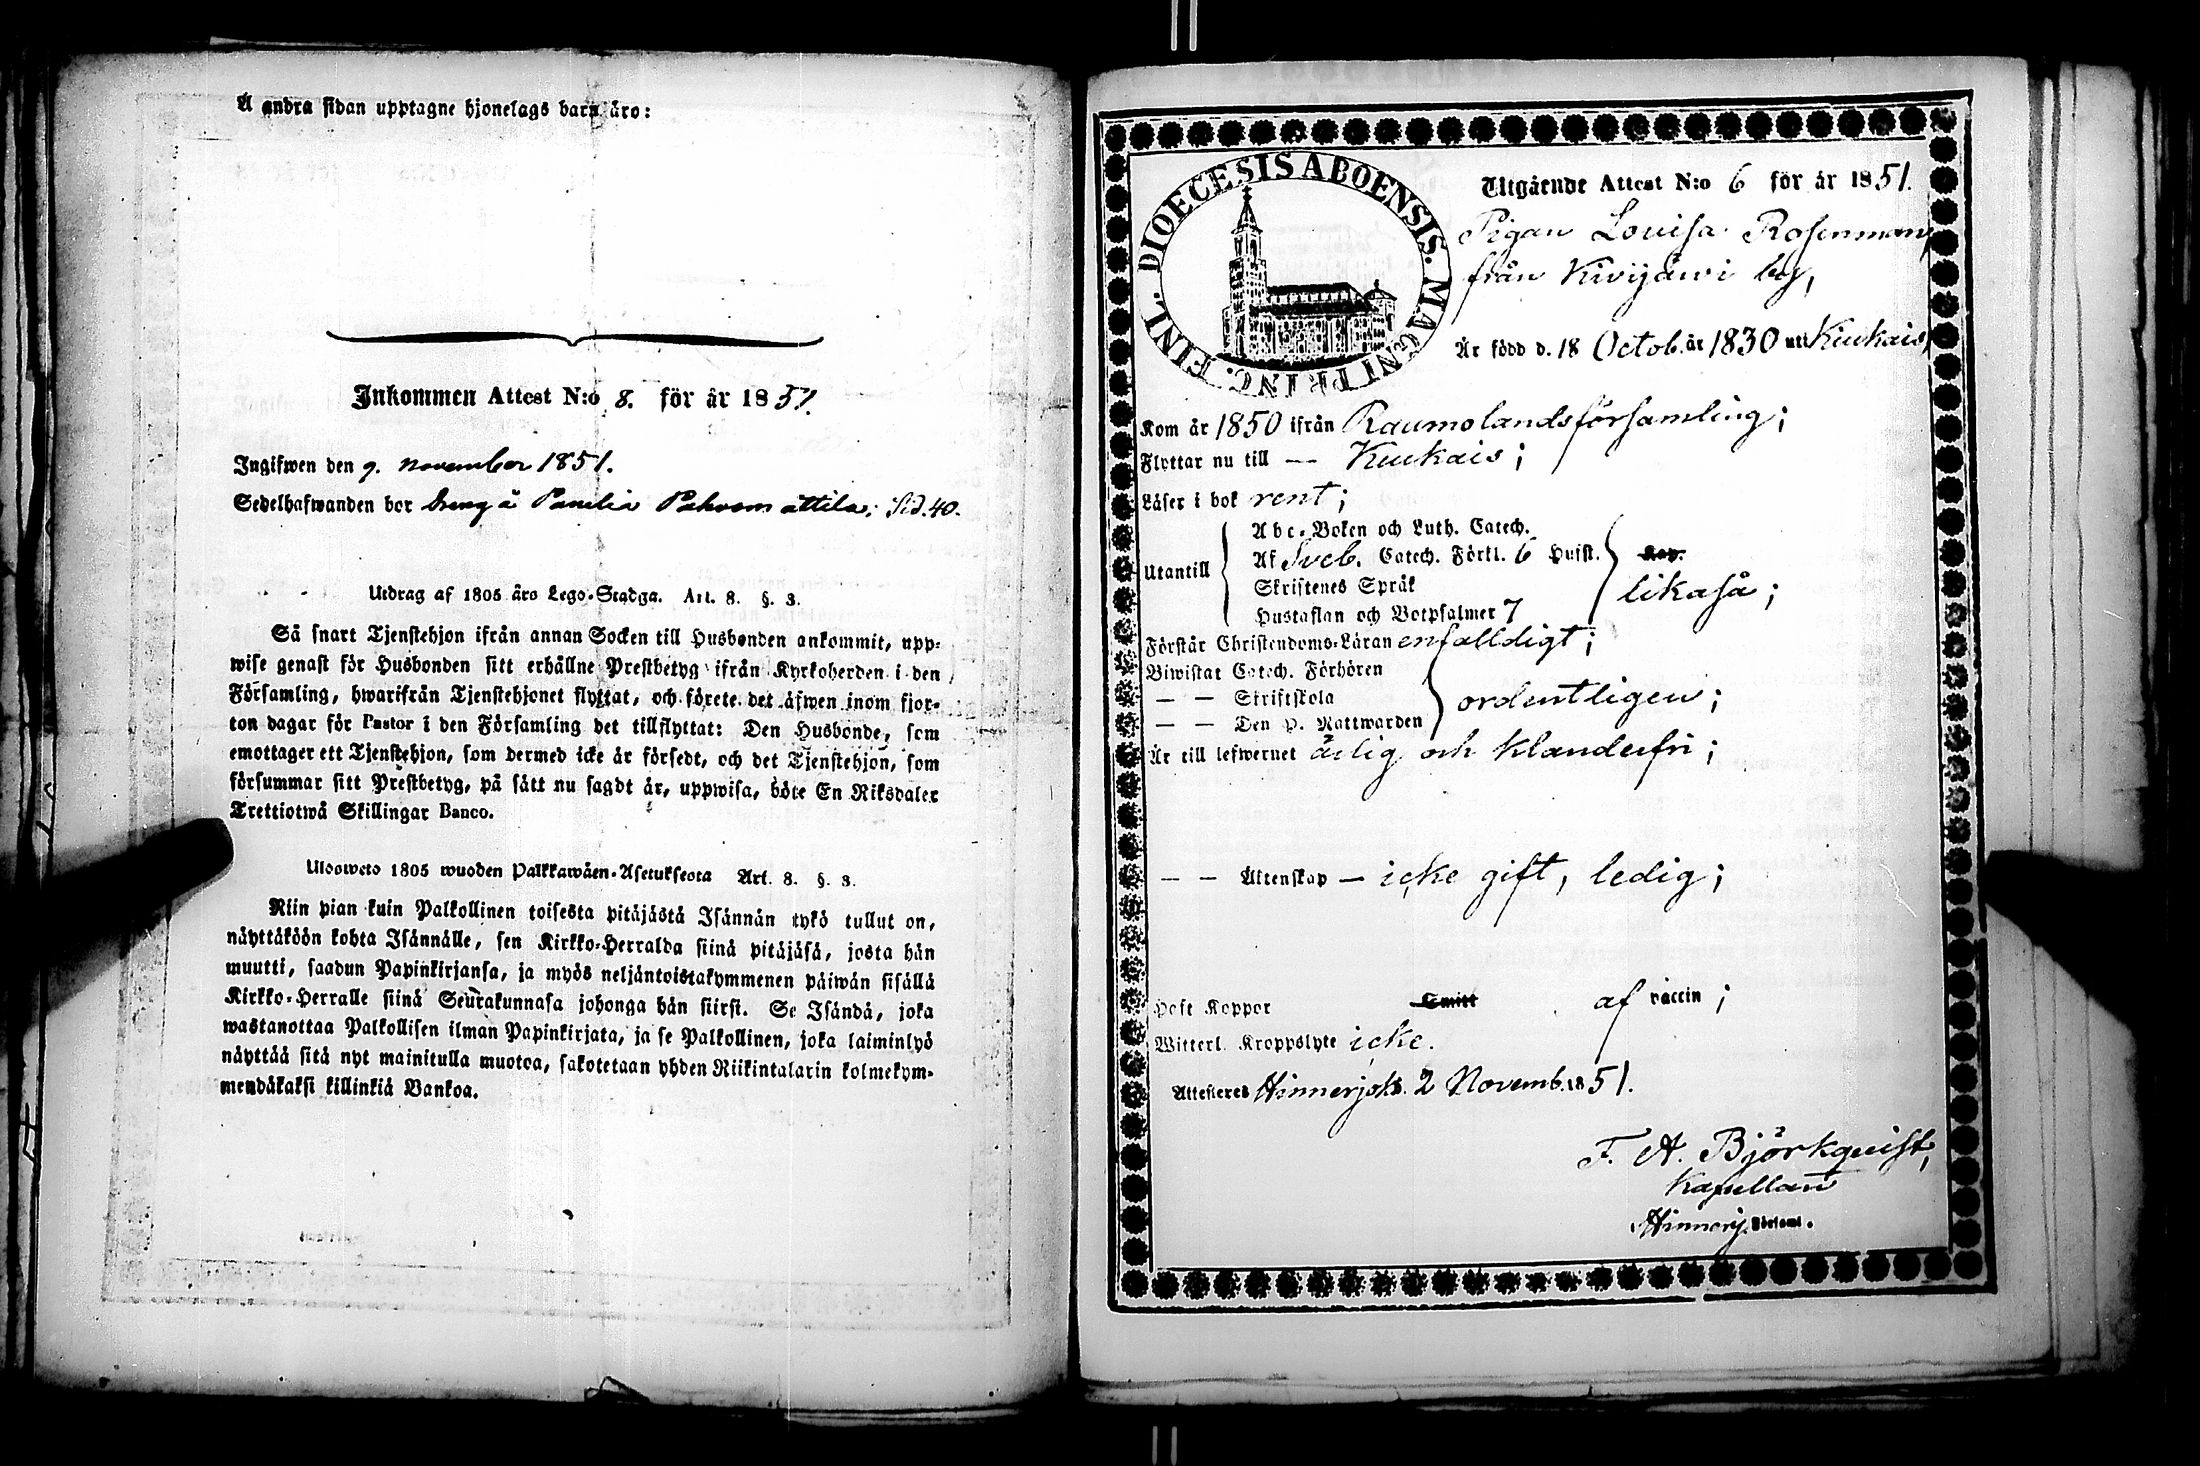 Å andra sidan upptagne hjonelags barn äro:
Inkommen Attest N:o 8. för år 1851.
Ingifwen den 9. november 1851.
Sedelhafwanden bor dreng å Panelia Pahoom attila; Sid. 40.
Utdrag af 1805 års Lego-Stadga. Art. 8. §. 3.
Så snart Tjenstehjon ifrån annan Socken till Husbonden ankommit, upp-
wise genast för Husbonden sitt erhållne Prestbetyg ifrån Kyrkoherden i den
Församling, hwarifrån Tjenstehjonet flyttat, och förete det äfwen inom fjor-
ton dagar för Pastor i den Församling det tillflyttat: Den Husbonde, som
emottager ett Tjenstehjon, som dermed icke är försedt, och det Tjenstehjon, som
försummar sitt Prestbetyg, på sätt nu sagdt är, uppwisa, böte En Riksdaler
Trettiotwå Skillingar Banco.
Ulosweto 1805 wuoden Palkkawäen-Asetuksesta Art. 8. §. 3.
Niin pian kuin Palkollinen toisesta pitäjästä Isännän tykö tullut on,
näyttäköön kohta Isännälle, sen Kirkko-Herralda siinä pitäjäsä, josta hän
muutti, saadun Papinkirjansa, ja myös neljäntoistakymmenen päiwän sisällä
Kirkko-Herralle siinä Seurakunnasa johonga hän siirsi. Se Isändä, joka
wastanottaa Palkollisen ilman Papinkirjata, ja se Palkollinen, joka laiminlyö
näyttää sitä nyt mainitulla muotoa, sakotetaan yhden Riikintalarin kolmekym-
mendäkaksi killinkiä Bankoa.
DIOECESIS ABOENSIS. MAGNI PRINC. FINL.
Utgående Attest N:o 6 för år 1851.
Pigan Lovisa Rosenman,
från Kivijärvi by,
Är född d. 18 Octob. år 1830 uti Kiukais,
Kom år 1850 ifrån Raumo landsförsamling;
Flyttar nu till — Kiukais;
Läser i bok rent;
Utantill
Abc-Boken och Luth. Catech.
Af Sveb. Catech. Förkl. 6 Hufst.
Skriftenes Språk
Hustaflan och Botpsalmer 7
Kap.
likaså;
Förstår Christendoms-Läran enfalldigt;
Biwistat Catech. Förhören
— — Skriftskola
— — Den H. Nattwarden
ordentligen;
Är till lefwernet ärlig och klanderfri;
— — Äktenskap — icke gift, ledig;
Haft Koppor Smitt af vaccin;
Witterl. Kroppslyte icke.
Attesteres Hinnerjoki. 2 Novemb. 1851.
F. A. Björkqvist,
Kapellan
i Hinnerj. FörSaml.